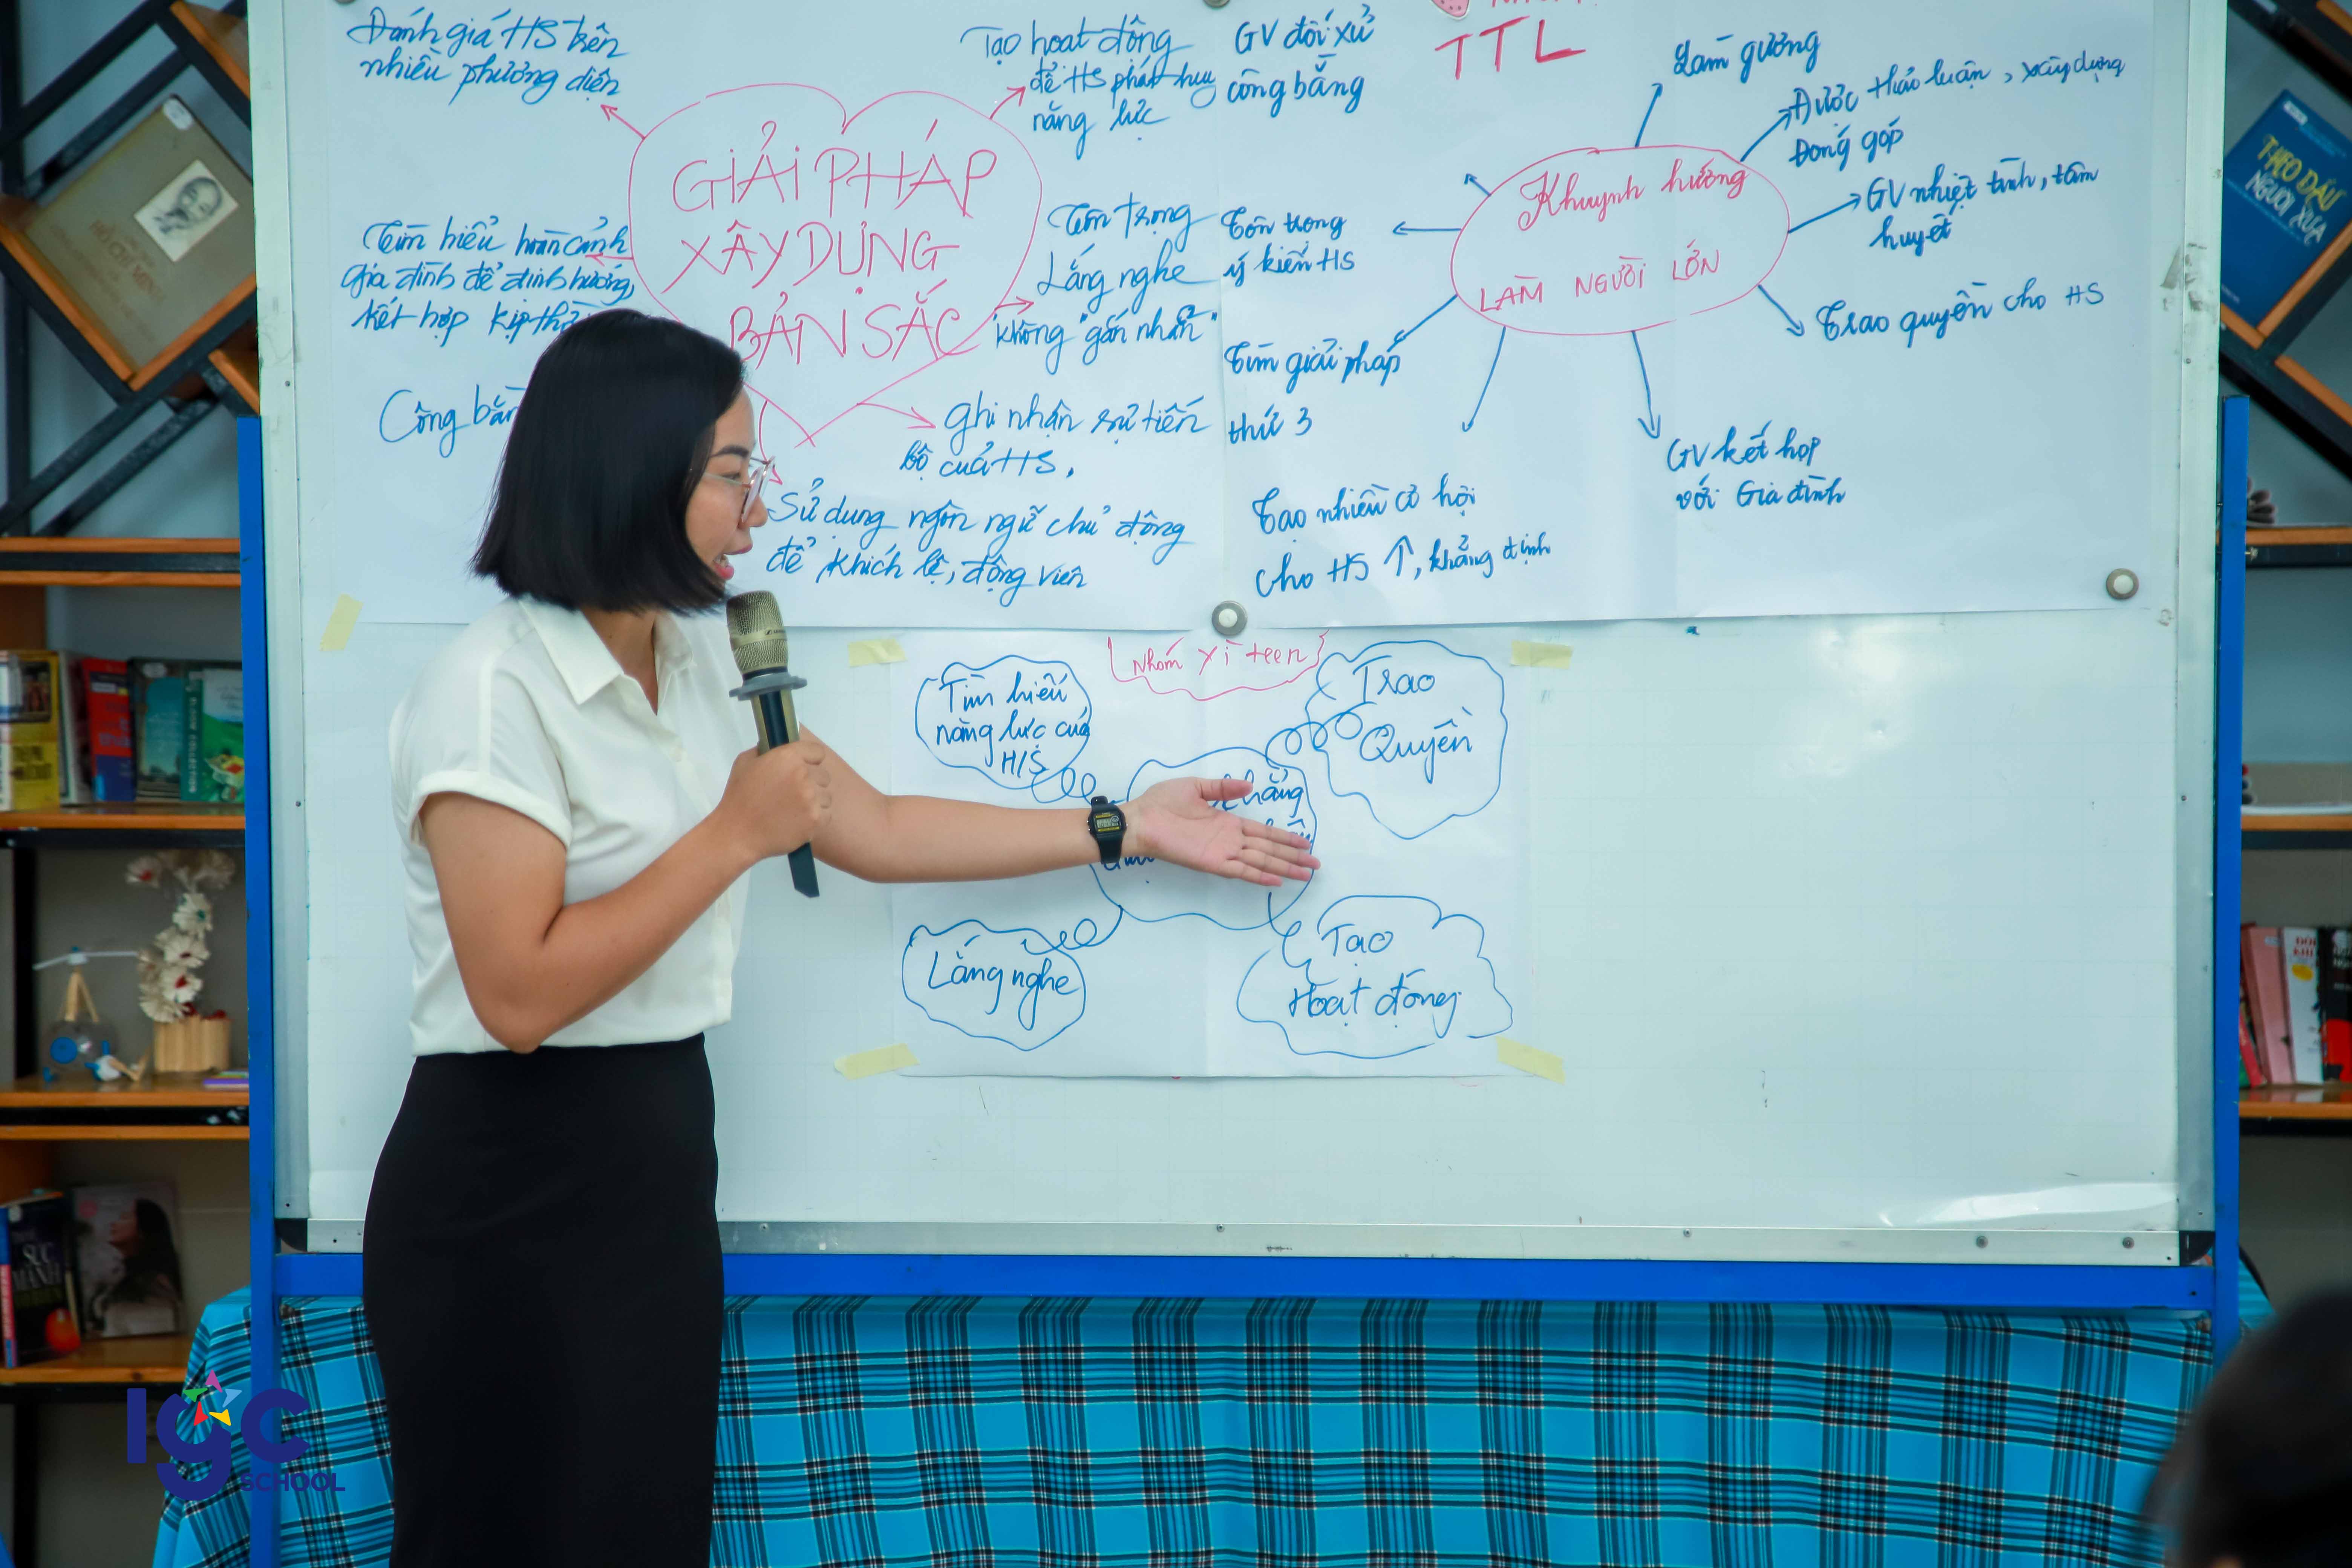 Đánh giá HS trên
nhiều phương diện
Tạo hoạt động
để HS phát huy
năng lực
GIẢI PHÁP
XÂY DỰNG
BẢN SẮC
Tìm hiểu hoàn cảnh
gia đình để định hướng,
kết hợp kịp
Tôn trọng
Lắng nghe
không "gắn nhãn"
Công
ghi nhận sự tiến
bộ của HS.
Sử dụng ngôn ngữ chủ động
để khích lệ, động viên
TTL
GV đối xử
công bằng
Làm gương
Được thảo luận, xây dựng
Đóng góp
Khuynh hướng
LÀM NGƯỜI LỚN
GV nhiệt tình, tâm
huyết
Tôn trọng
ý kiến HS
Trao quyền cho HS
Tìm giải pháp
thứ 3
GV kết hợp
với Gia đình
Tạo nhiều cơ hội
cho HS ↑, khẳng định
Nhóm xì teen
Tìm hiểu
năng lực của
H/S
Trao
Quyền
Lắng nghe
Tạo
Hoạt động
THEO DẤU
NGƯỜI XƯA
HỒ CHÍ MINH
SỨC
MẠNH
IGC
SCHOOL